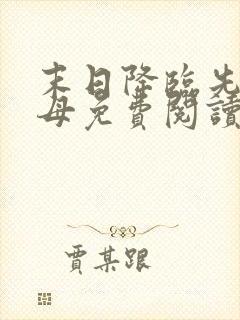 末日降臨先
母免費閱讀
賈某跟